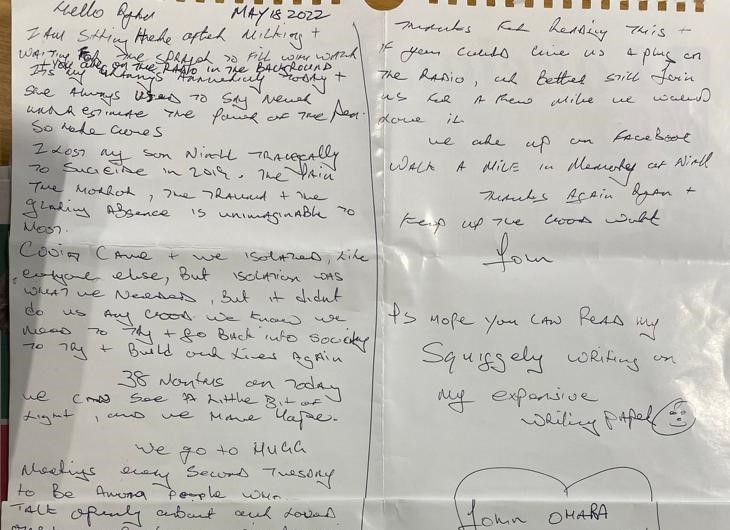 Hello Ryan MAY 18 2022
I AM Sitting Here after Milking +
WAITING FOR THE SPREADER TO Fill WITH WATER
+ YOU ARE ON THE RADIO IN THE BACKGROUND
ITS MY Anniversary TODAY +
She Always USED TO SAY Never
UNDERESTIMATE THE POWER OF THE Pen.
So Here Goes
I LOST MY SON Niall TRAGECALLY
TO SUICIDE IN 2019. The PAIN
The HORROR, The TRAUMA + The
glaring Absence IS UNIMAGINABLE TO
MOST.
COVID CAME + we ISOLATED, Like
everyone else, But ISOLATION WAS
WHAT we NEEDED, BUT it didnt
do us Any GOOD. We KNOW We
Need TO TRY + GO BACK into SOCIETY
TO TRY + Build our Lives Again
38 Months on TODAY
we CAN See A Little Bit of
Light, and we Have Hope.
We go to HUGG
Meetings every Second Tuesday
to Be Among People WHO
TALK Openly about our Loved
THANKS FOR Reading THIS +
IF you COULD Give US A plug on
The RADIO, or Better Still Join
us FOR A FEW Mile we would
Love it
We are up on FACEBOOK
WALK A MILE in Memory of Niall
THANKS AGAIN Ryan +
Keep up THE GOOD Work
John
PS HOPE YOU CAN READ my
Squiggely writing on
My expensive
writing paper
John OHARA